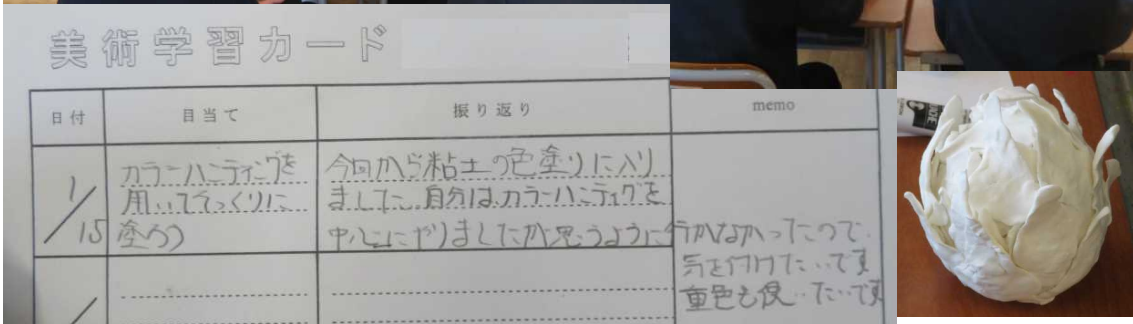 美術学習カード
日付
目当て
振り返り
memo
1/15
カラーハンティングを
用いてそっくりに
塗ろう
今回から粘土の色塗りに入り
ました。自分はカラーハンティングを
中心にやりましたが思うように行かなかったので、
気を付けたいです
重色も使いたいです